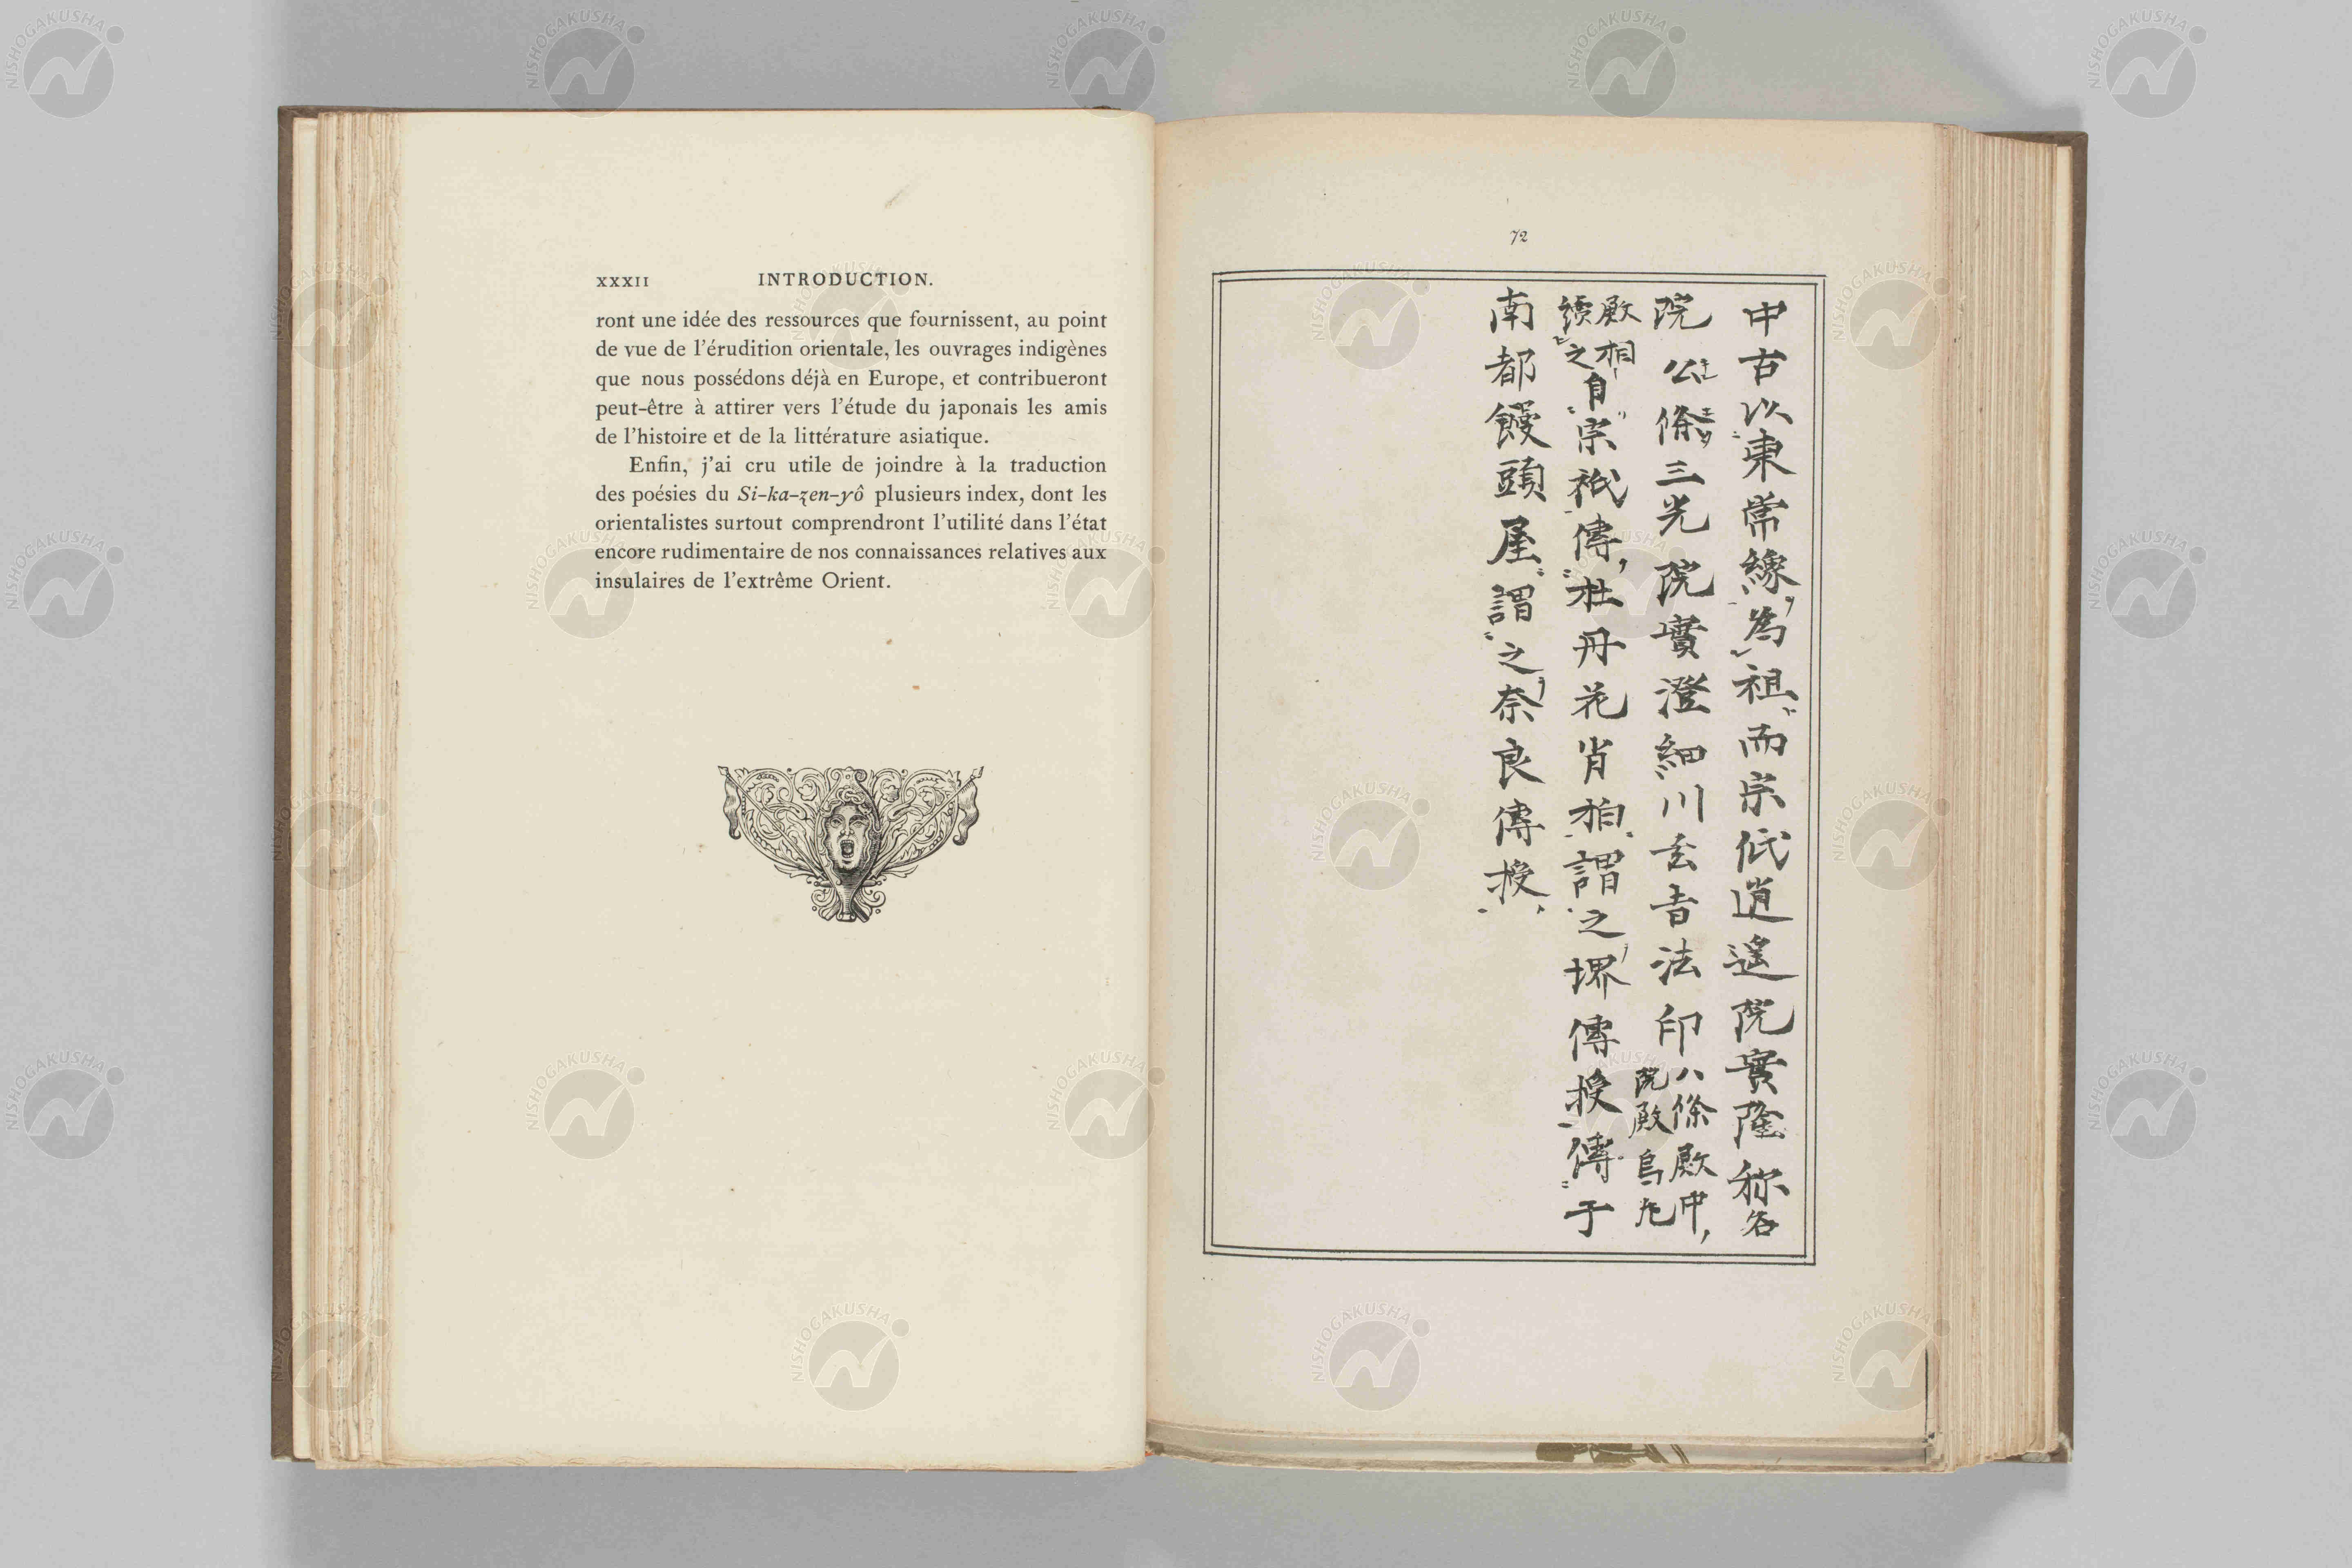 XXXII INTRODUCTION.
ront une idée des ressources que fournissent, au point
de vue de l'érudition orientale, les ouvrages indigènes
que nous possédons déjà en Europe, et contribueront
peut-être à attirer vers l'étude du japonais les amis
de l'histoire et de la littérature asiatique.
Enfin, j'ai cru utile de joindre à la traduction
des poésies du Si-ka-zen-yô plusieurs index, dont les
orientalistes surtout comprendront l'utilité dans l'état
encore rudimentaire de nos connaissances relatives aux
insulaires de l'extrême Orient.
72
中古以東常縁為祖而宗祇逍遙院實隆称名
院公條三光院實澄細川玄旨法印八條殿中院殿烏丸
殿相續之自宗祇傳牡丹花肖柏謂之堺傳授傳于
南都饅頭屋謂之奈良傳授
NISHOGAKUSHA